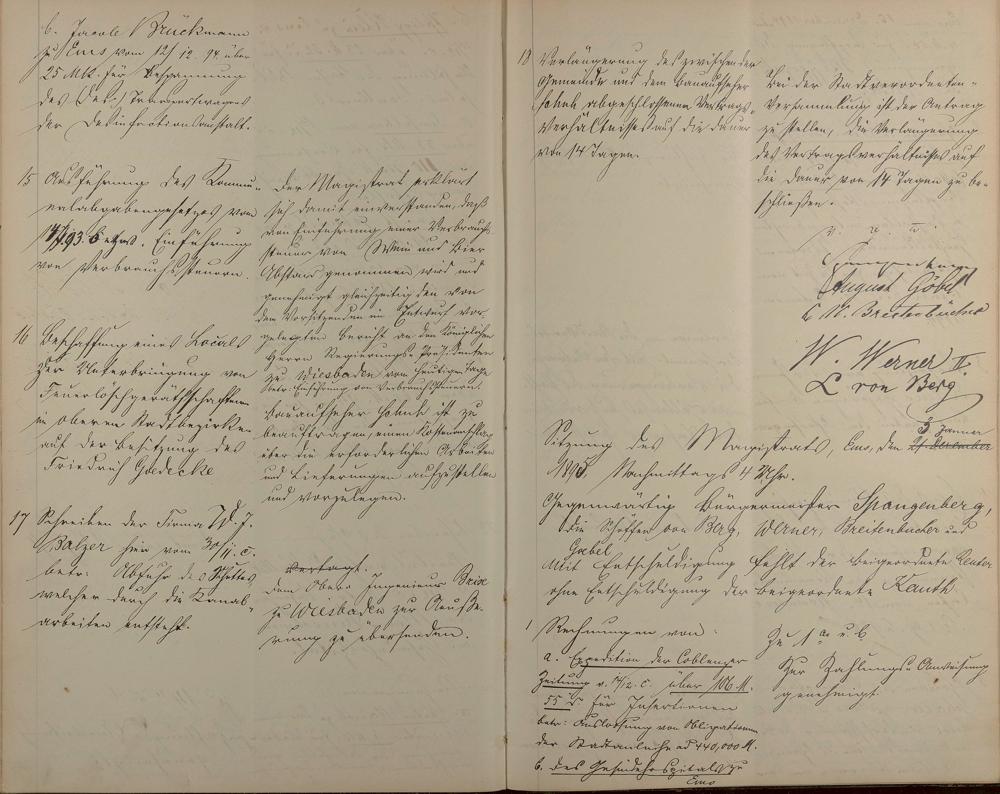 b. Jacob Brückmann
zu Ems vom 12/12. 94 über
25 Mk. für Bespannung
des (Des.) Transportwagens
der Desinfectionsanstalt.
15 Ausführung des Kommu-
nalabgabengesetzes vom
14/7.93. betr. Einführung
von Verbrauchssteuern.
Der Magistrat erklärt
sich damit einverstanden, daß
von Einführung einer Verbrauchs-
steuer von Wein und Bier
Abstand genommen wird und
genehmigt gleichzeitig den von
dem Vorsitzenden im Entwurf vor-
gelegten Bericht an den Königlichen
Herrn Regierungs-Präsidenten
zu Wiesbaden vom heutigen Tage
betr. Einführung von Verbrauchssteuern.
16 Beschaffung eines Locals
zur Unterbringung von
Feuerlöschgeräthschaften
im oberen Stadtbezirke
auf der Besitzung des
Friedrich Goedecke
Bauaufseher Hohnk ist zu
beauftragen, einen Kostenvorschlag
über die erforderlichen Arbeiten
und Lieferungen aufzustellen
und vorzulegen.
17 Schreiben der Firma W. J.
Balzer hier vom 30/11. c.
betr. Abfuhr des Schuttes
welcher durch die Kanal-
arbeiten entsteht.
Vertagt.
Dem Ober Ingenieur Brix
zu Wiesbaden zur Aeuße-
rung zu übersenden.
18 Verlängerung des zwischen der
Gemeinde und dem Bauaufseher
Hohnk abgeschlossenen Vertrags-
Verhältnisses auf die Dauer
von 14 Tagen.
Bei der Stadtverordneten-
Versammlung ist der Antrag
zu stellen, die Verlängerung
des Vertragsverhältnisses auf
die Dauer von 14 Tagen zu be-
schließen.
v. g. u.
Spangenberg
August Göbel
C. W. Breitenbücher
W. Werner II.
L von Berg
Sitzung des Magistrats, Ems, den 21 December 5 Januar
1895. Nachmittags 4 Uhr.
Gegenwärtig Bürgermeister Spangenberg,
die Schöffen von Berg, Werner, Breitenbücher und
Gabel
Mit Entschuldigung fehlt der Beigeordnete
ohne Entschuldigung der Beigeordnete Kauth
1 Rechnungen von:
a. Expedition der Coblenzer
Zeitung v. 1/12. c. über 106 M.
55 ₰ für Insertionen
betr. Ausloosung von Obligationen
der Stadtanleihe ad 440,000 M.
b. des Gesindehospitals zu
Ems
Zu 1 a u. b.
Zur Zahlungs-Anweisung
genehmigt